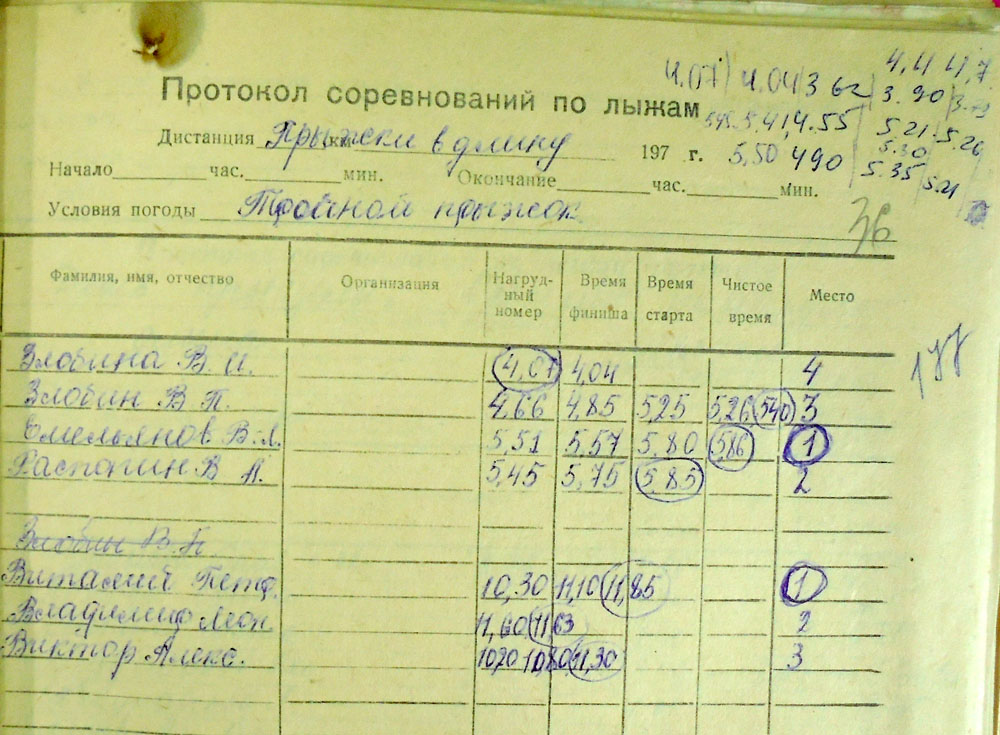 4.07 4.04 3 62 3.90
4.4 4,7
Протокол соревнований по лыжам
5.41, 4.55 5.21. 5.26
5.30
Дистанция Прыжки в длину 197 г. 5,50 4 90 5.35 5.21
Начало час. мин. Окончание час. мин.
Условия погоды Тройной прыжок
36
Фамилия, имя, отчество Организация Нагруд-ный номер Время финиша Время старта Чистое время Место
177
Злобина В. И. 4,07 4,04 4
Злобин В П. 4,66 4,85 5,25 5,26 5,40 3
Емельянов В.Л. 5,51 5,57 5,80 5,86 1
Распопин В А. 5,45 5,75 5,85 2
Злобин В П
Виталий Петр. 10,30 11,10 11,85 1
Владимир Леон 11,60 11,63 2
Виктор Алекс. 10,20 10,80 11,30 3